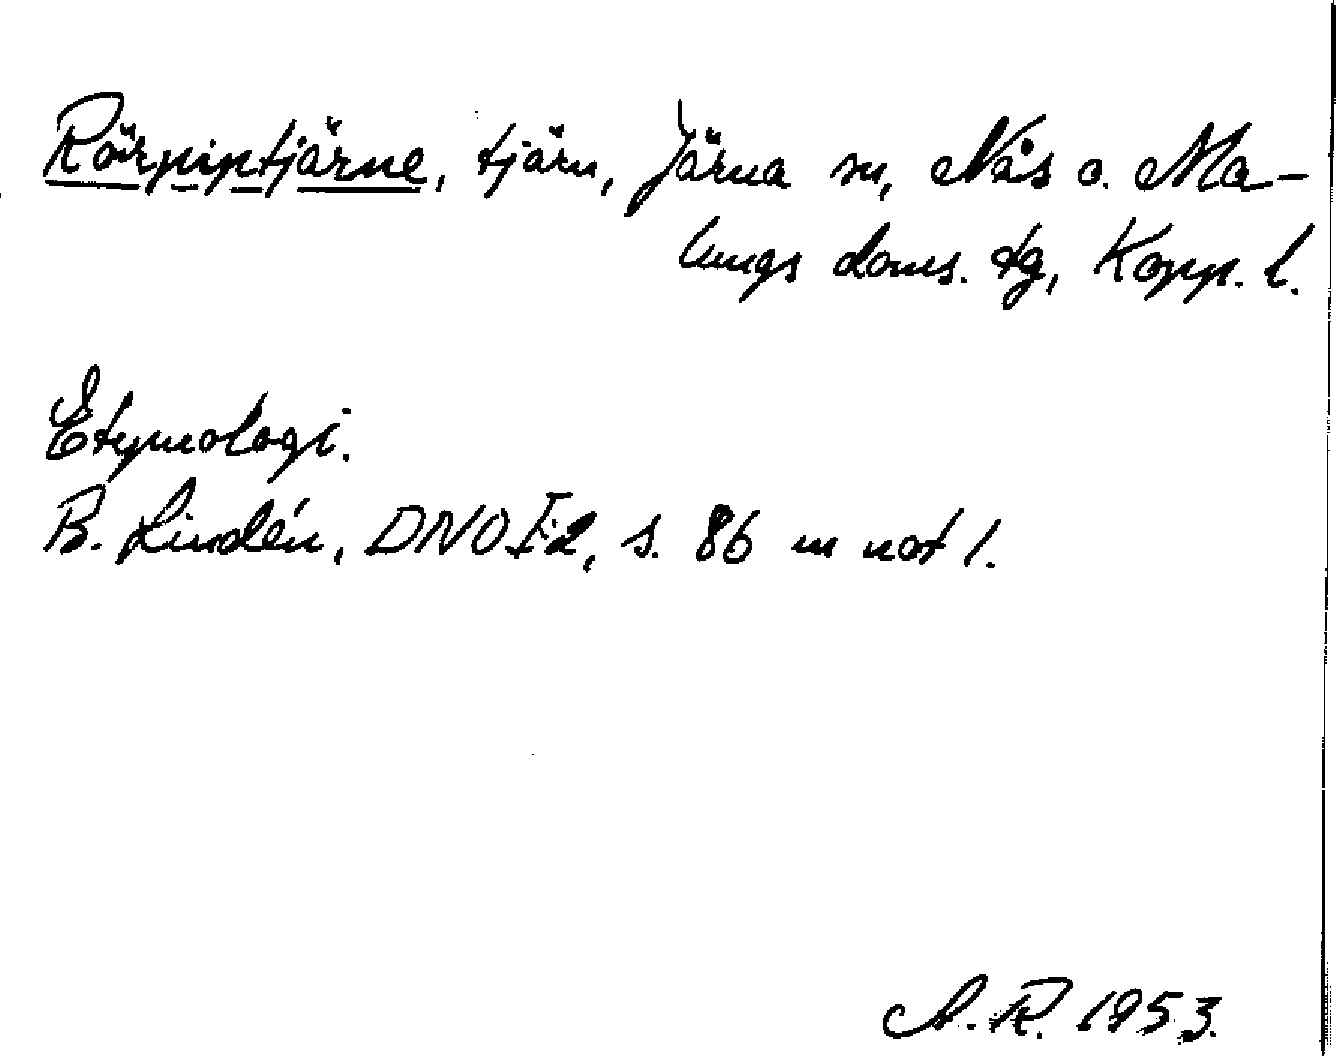 Rörpiptjärne, tjärn, Järna sn, Nås o. Ma-
lungs doms. tg, Kopp. l.
Etymologi.
B. Lindén, DNO I:2, s. 86 m not 1.
A. R. 1953.